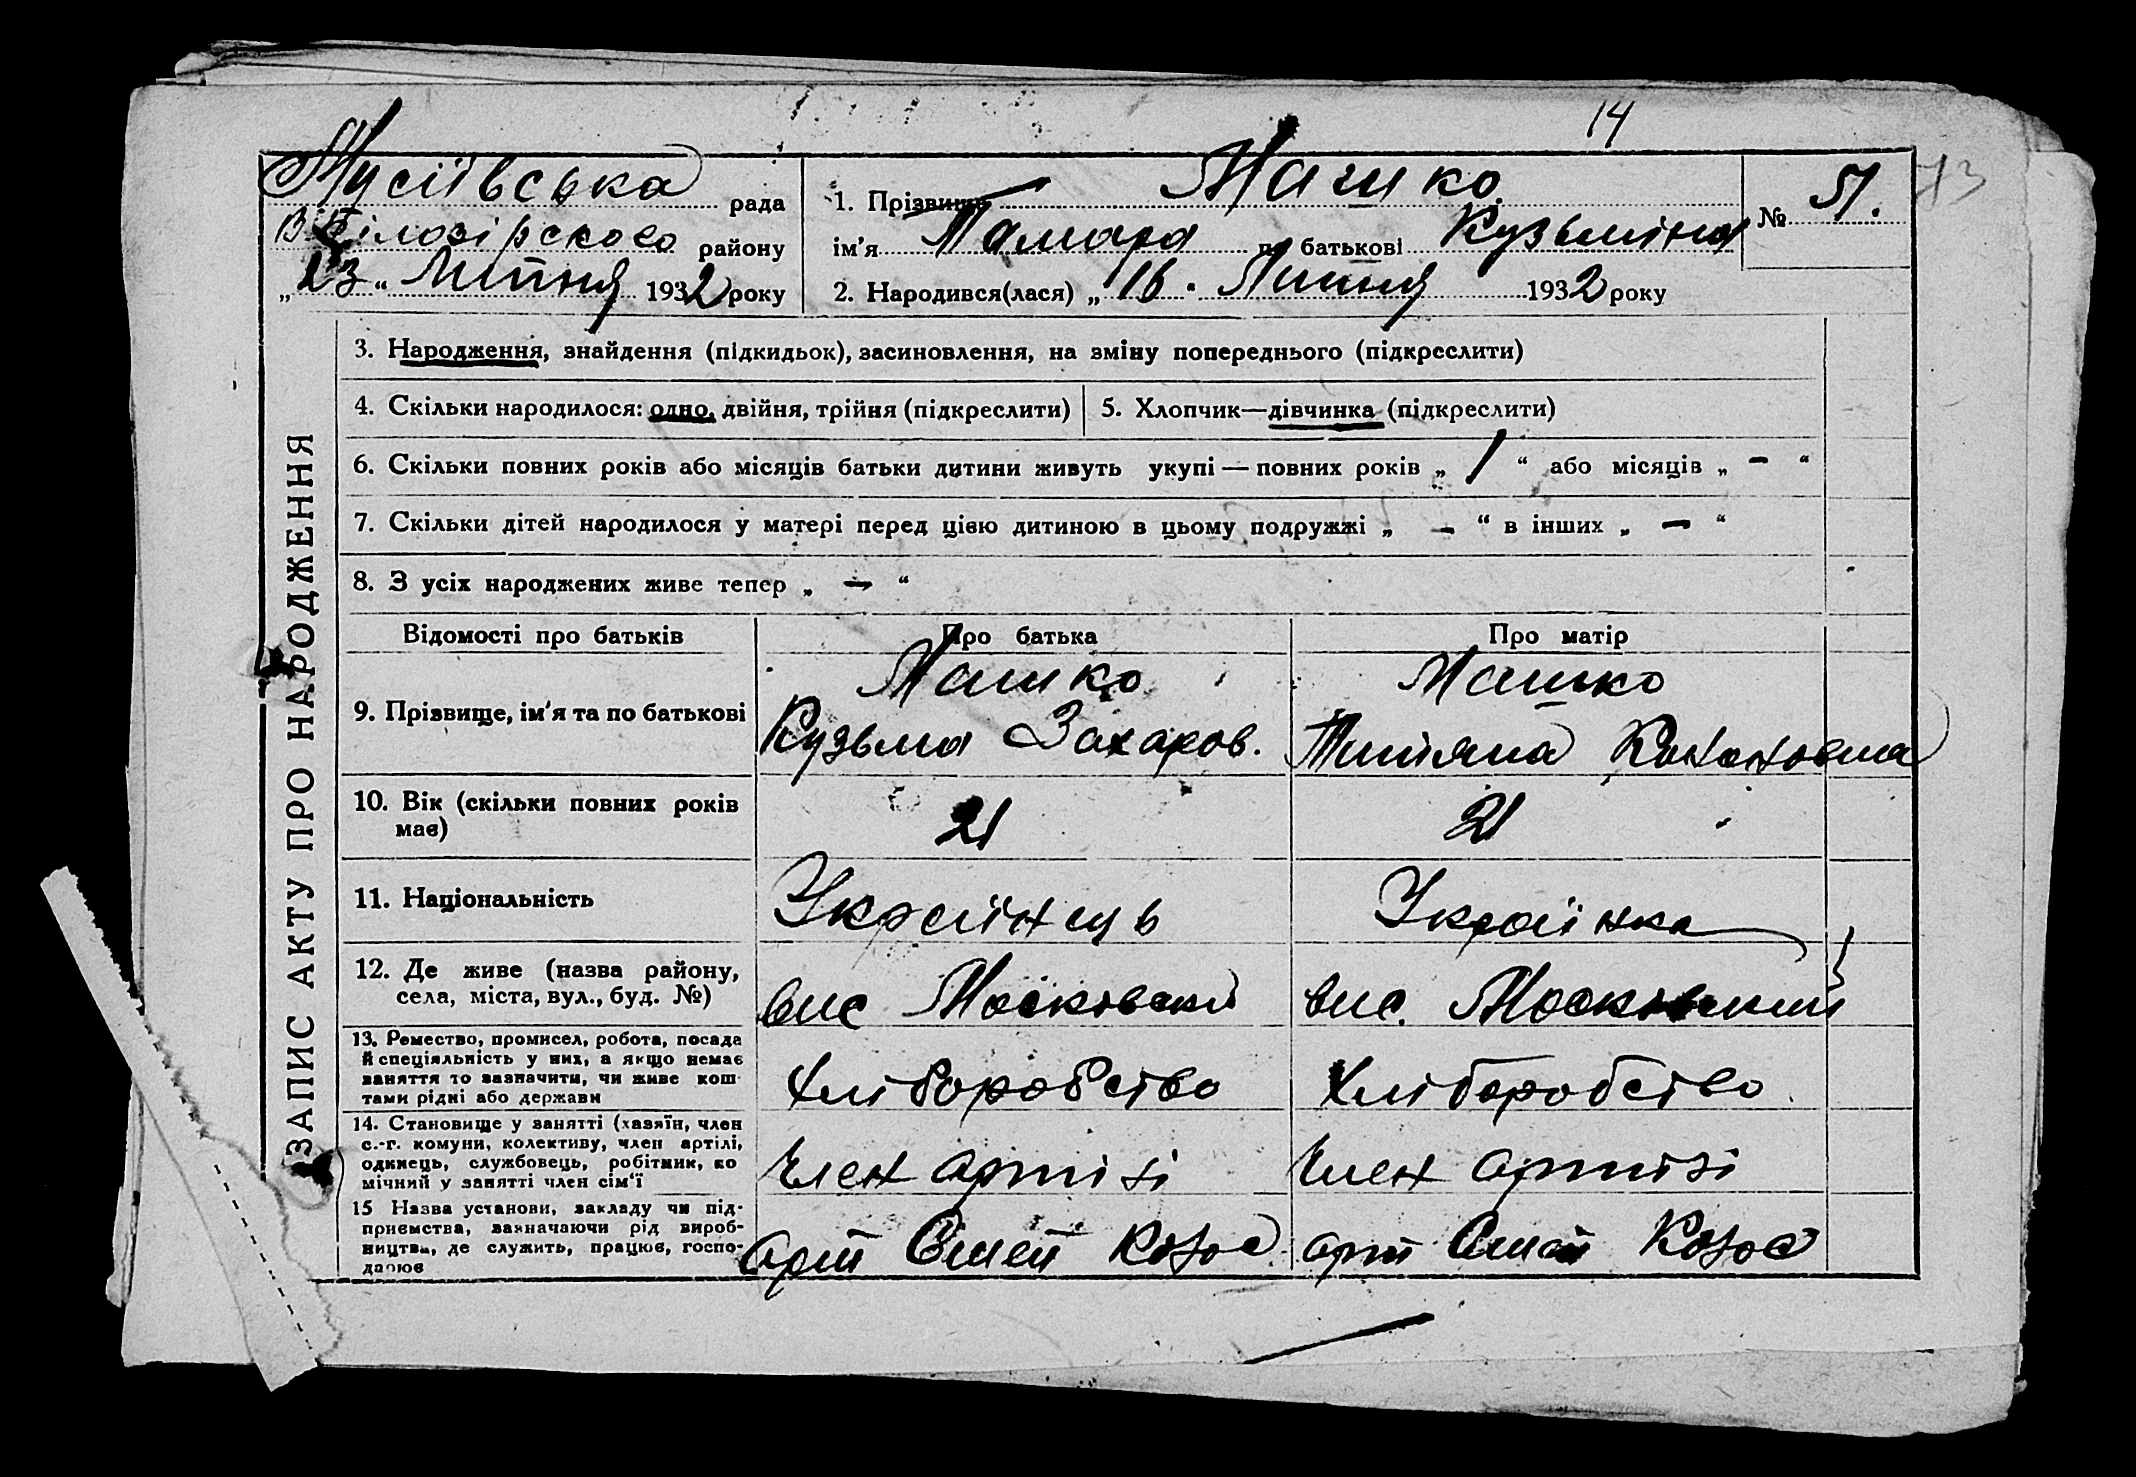 14
Мусіївська рада
В Білозірского району
„23“ Липня 1932 року
1. Прізвище Машко
ім'я Тамара по батькові Кузьміна
№ 51.
13
2. Народився(лася) „16. Липня 1932 року
ЗАПИС АКТУ ПРО НАРОДЖЕННЯ
3. Народження, знайдення (підкидьок), засиновлення, на зміну попереднього (підкреслити)
4. Скільки народилося: одно, двійня, трійня (підкреслити)
5. Хлопчик—дівчинка (підкреслити)
6. Скільки повних років або місяців батьки дитини живуть укупі — повних років „ 1 “ або місяців „ – “
7. Скільки дітей народилося у матері перед цією дитиною в цьому подружжі „ – “ в інших „ – “
8. З усіх народжених живе тепер „ – “
Відомості про батьків
Про батька
Про матір
9. Прізвище, ім'я та по батькові
Машко
Кузьма Захаров.
Машко
Титяна Кононовна
10. Вік (скільки повних років
має)
21
21
11. Національність
Українець
Українка
12. Де живе (назва району,
села, міста, вул., буд. №)
вис Московский
вис. Московский
13. Ремество, промисел, робота, посада
й спеціяльність у них, а якщо немає
заняття то зазначити, чи живе кош
тами рідні або держави
Хліборобство
Хліборобство
14. Становище у занятті (хазяїн, член
с.-г. комуни, колективу, член артілі,
одинець, службовець, робітник, по
мічний у занятті член сім'ї
Член артілі
Член артілі
15 Назва установи, закладу чи під-
приємства, зазначаючи рід вироб-
ництва, де служить, працює, госпо-
дарює
арт
арт